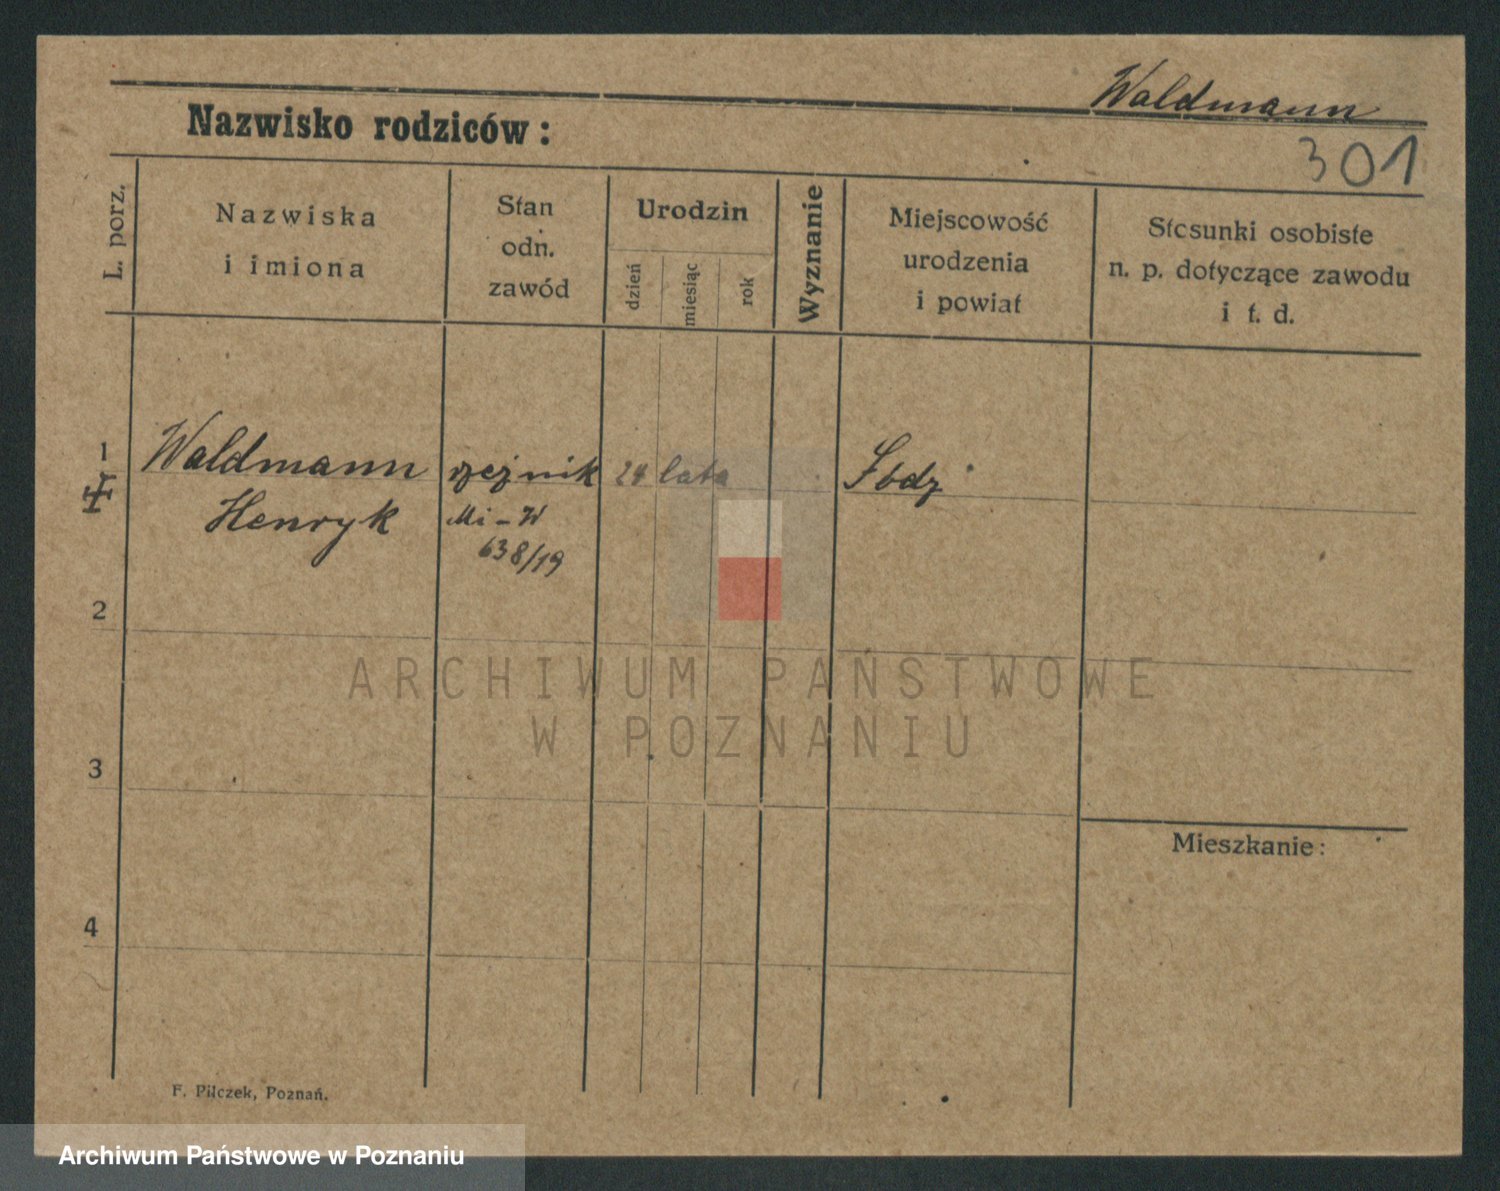 Waldmann
Nazwisko rodziców:
301
L. porz.
Nazwiska
i imiona
Stan
odn.
zawód
Urodzin
dzień
miesiąc
rok
Wyznanie
Miejscowość
urodzenia
i powiat
Stosunki osobiste
n. p. dotyczące zawodu
i t. d.
1
Waldmann
Henryk
rzeźnik
Mi-W
638/19
24 lata
2
3
4
Mieszkanie:
F. Pilczek, Poznań.
ARCHIWUM PAŃSTWOWE
W POZNANIU
Archiwum Państwowe w Poznaniu